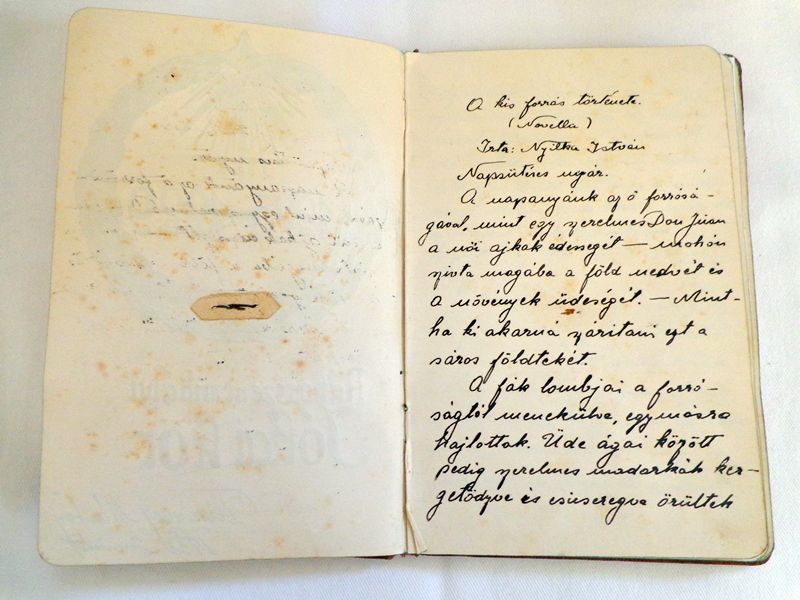 A kis forrás története.
(Novella)
Irta: Nyilka István
Napsütéses nyár.
A napanyánk az ő forrósá-
gával, mint egy szerelmes Don Jüan
a női ajkák édességét — mohón
szivta magába a föld nedvét és
a növények üdeségét. — Mint-
ha ki akarná szárítani ezt a
sáros földtekét.
A fák lombjai a forró-
ságtól menekülve, egymásra
hajlottak. Üde ágai között
pedig szerelmes madarkák ker-
getődzve és csiseregve örültek